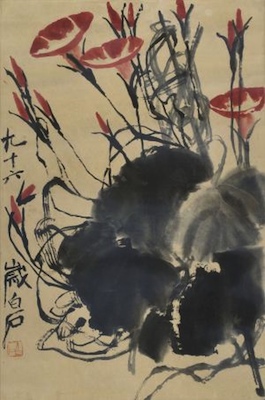 九十六
歲白石